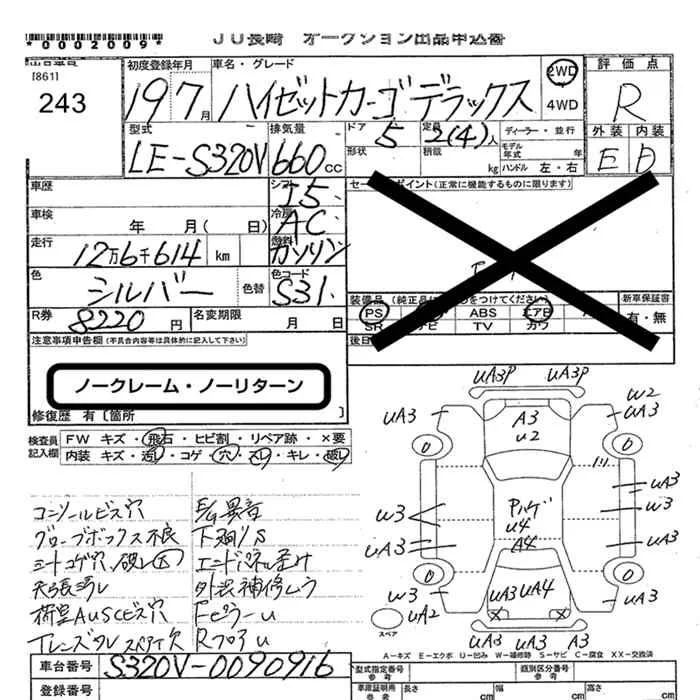 *0002009*
JU長崎 オークション出品申込書
[861]
243
初度登録年月
19 7月
車名・グレード
ハイゼットカーゴ デラックス
2WD
・
4WD
評価点
R
外装 内装
E D
型式
LE-S320V
排気量
660cc
ドア
5
形状
定員
2(4)人
積載
kg
ディーラー・並行
モデル年式 年
ハンドル 左・右
車歴
シフト
I5
セールスポイント(正常に機能するものに限ります)
車検
年 月( 日)
冷房
AC
走行
12万6千614 km
燃料
ガソリン
色
シルバー
色替
色コード
S31
R券
8220円
名変期限
月 日
装備品
PS ABS エアB
SR ナビ TV カワ
新車保証書
有・無
注意事項申告欄(不具合内容等は具体的に記入して下さい)
ノークレーム・ノーリターン
修復歴 有〔箇所 〕
検査員記入欄
FW キズ・飛石・ヒビ割・リペア跡・×要
内装 キズ・汚レ・コゲ・穴・スレ・キレ・破レ
コンソールビス穴
グローブボックス不良
シートコゲ穴、破レ大
天張汚レ
荷室AUSCビス穴
E/G異音
下廻/S
外装補修レウ
Fピラーu
Rフロアu
uA3P uA3P
uA3
A3
u2
w2
uA3
w3
uA3
uA3
w3
uA3
u4
A4
uA3 uA4
uA2
スペア
uA3 uA3 A3
A-キズ E-エクボ U-凹ミ W-補修跡 S-サビ C-腐食 XX-交換済
車台番号
S320V-0090916
登録番号
型式指定番号
参考
類別区分番号
参考
車庫証明用
参考
長さ
cm
幅
cm
高さ
cm